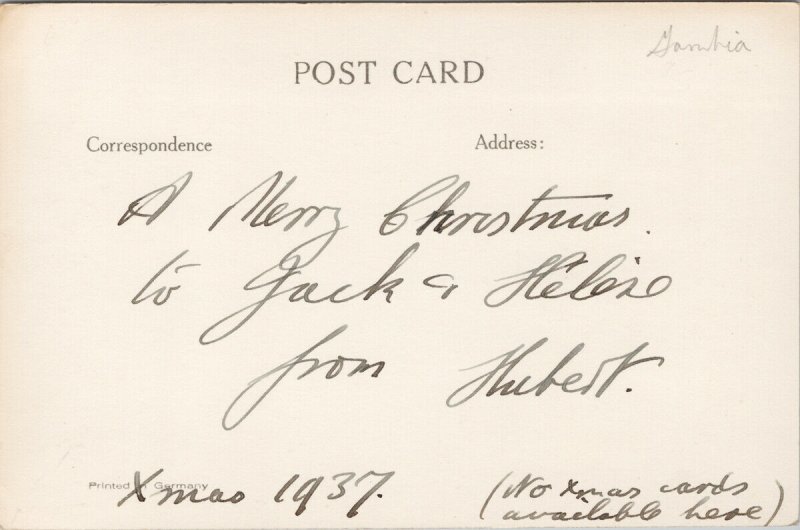 Gambia
POST CARD
Correspondence
Address:
A Merry Christmas.
to Jack & Hélèse
from Hubert.
Printed in Germany
Xmas 1937.
(No Xmas cards
available here)